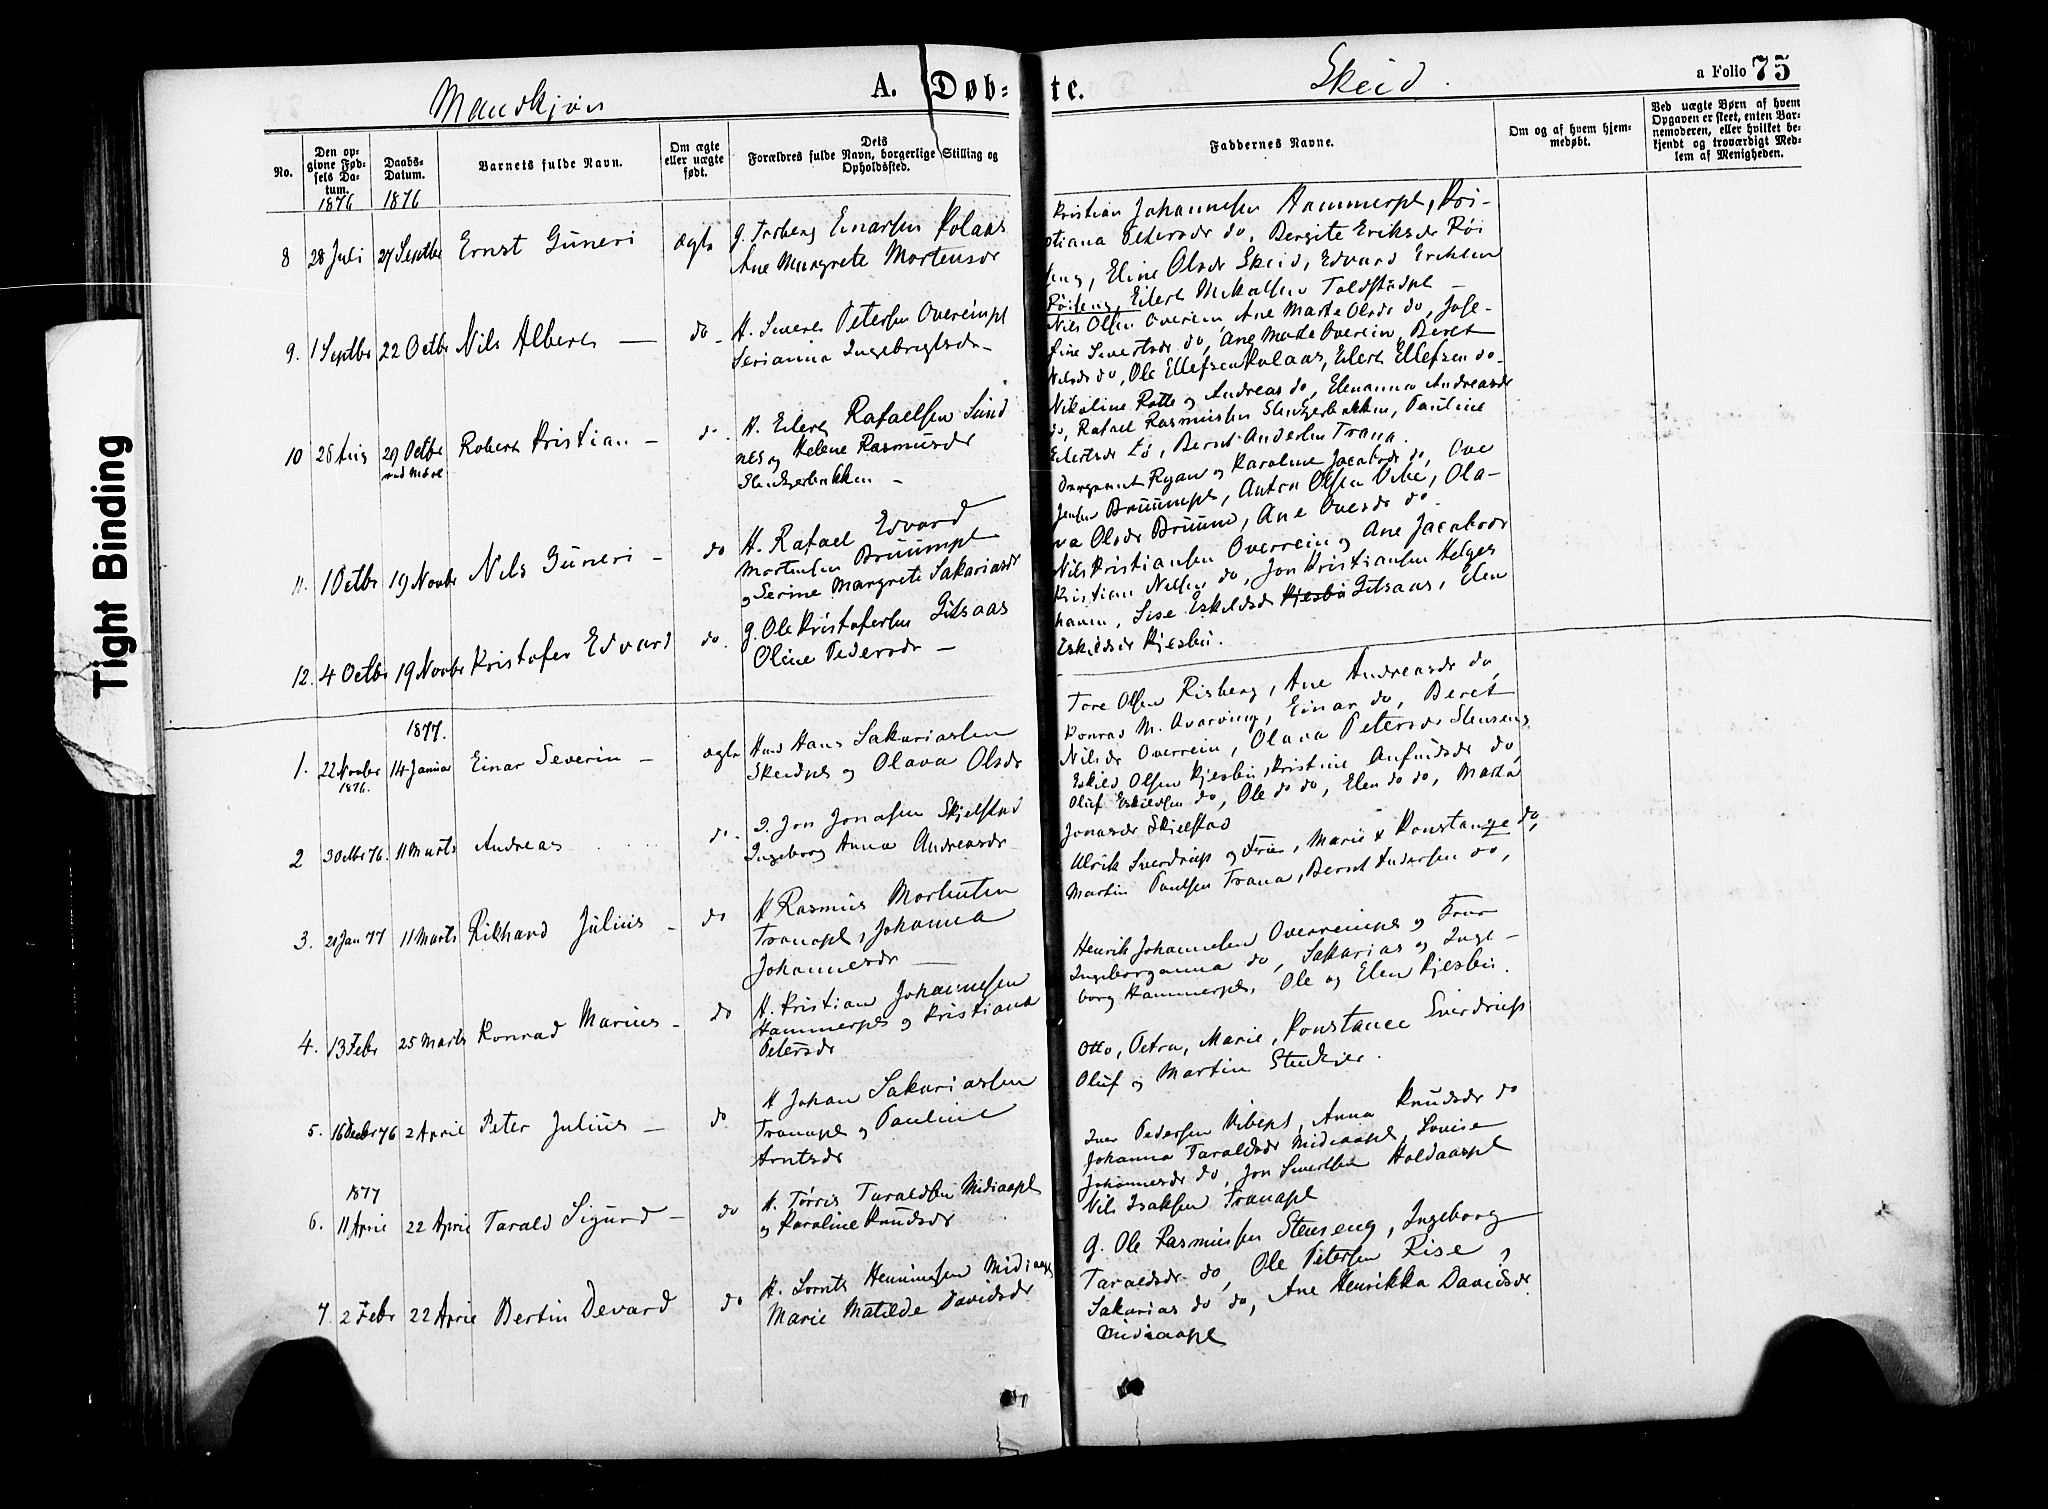 Mandkjøn
A. Døb-
te.
Skeid.
a Folio 75
No.
Den op-
givne Fød-
sels Da-
tum.
1876
Daabs-
Datum.
1876
Barnets fulde Navn.
Om ægte
eller uægte
født.
Dets
Forældres fulde Navn, borgerlige Stilling og
Opholdssted.
Faddernes Navne.
Om og af hvem hjem-
medøbt.
Ved uægte Børn af hvem
Opgaven er skeet, enten Bar-
nemoderen, eller hvilket be-
kjendt og troværdigt Med-
lem af Menigheden.
8 28 Juli 24 Septbr Ernst Guneri ægte G. Torberg Einarsen Kolaas
Ane Margrete Mortensdr
Kristian Johannesen Hammerpl, Kri-
stiana Petersdr do, Bergite Eriksdr Røi
seng, Eline Olsdr Skeid, Edvard Eriksen
Røiseng, Eilert Mikalsen
9. 1 Septbr 22 Octbr Nils Albert — do H. Sivert Petersen Overeinpl
Serianna Ingebrigtsdr —
Nils Olsen Overein, Ane Marta Olsdr do, Jose-
fine Sivertsdr do, Ane Marta Overein, Beret
Nilsdr do, Ole Ellefsen Kolaas, Eilert Ellefsen do
10 25 Aug 29 Octbr Robert Kristian — do. H. Eilert Rafaelsen Sund
nes og Helene Rasmusdr
Nikoline Rotte og Andreas do, Elenanna Andreasdr
do, Rafael Rasmussen, Pauline
Eilertsdr Lø, Bernt Andersen Trana.
11. 1 Octbr 19 Novbr Nils Guneri — do H. Rafael Edvard
Mortensen Bruumpl
og Serine Margrete Sakariasdr
Dragsant Ryan og Karoline Jacobsdr do, Ove
Jensen Bruumpl, Anton Olsen Vibe, Ola-
va Olsdr Bruum, Ane Ovesdr do
12. 4 Octbr 19 Novbr Kristofer Edvard do. G. Ole Kristofersen Gilsaas
Oline Pedersdr —
Nils Kristiansen Overrein og Ane Jacobsdr
Kristian Nilsen do, Jon Kristiansen Helges
haun, Sise Eskildsdr Kjesbu Gilsaas, Elen
Eskildsdr Kjesbu.
1877.
1. 22 Novbr 14 Januar Einar Severin — ægte Husmd Hans Sakariassen
1876.
Skeidpl og Olava Olsdr
Tore Olsen Risberg, Ane Andreasdr do,
Konrad M. Qvarving, Einar do, Beret
Nilsdr Overrein, Olava Petersdr Stenseng
2 30 Oktbr 76. 11 Marts Andreas do. G. Jon Jonasen Skjelstad
Ingeborg Anna Andreasdr
Eskild Olsen Kjesbu, Kristine Anfindsdr do,
Oluf Eskildsen do, Ole do do, Elen do do, Marta
Jonasdr Skjelstad
3. 21 Jan 77 11 Marts Rikhard Julius — do H Rasmus Mortensen
Tranapl, Johanna
Johannesdr —
Ulrik Sverdrup og Frue, Marie & Konstange do,
Martin Paulsen Trana, Bernt Andersen do,
4. 13 Febr 25 Marts Konrad Marius — do H. Kristian Johannesen
Hammerpl og Kristiana
Petersdr
Henrik Johannesen Overreinpl og Frue
Ingeborganna do, Sakarias og Inge-
borg Hammerpl, Ole og Elen Kjesbu.
5. 16 Decbr 76 2 April Peter Julius — do H Johan Sakariassen
Tranapl og Pauline
Arntsdr
Otto, Petra, Marie, Konstance Sverdrup
Oluf og Martin Stenkjer.
1877
6. 11 April 22 April Tarald Sigurd — do H. Tørris Taraldsen Midiaapl
og Karoline Knudsdr
Iver Pedersen Vibepl, Anna Knudsdr do
Johanna Taraldsdr Midiaapl, Lovise
Johannesdr do, Jon Sivertsen Holdaaspl
Nils Isaksen Tranapl
7. 2 Febr 22 April Bertin Devard do H. Lornts Henningsen Midiaapl
Marie Matilde Davidsdr
G. Ole Rasmussen Stenseng, Ingeborg
Taraldsdr do, Ole Petersen Rise,
Sakarias do do, Ane Henrikka Davidsdr
Midiaapl
Tight Binding